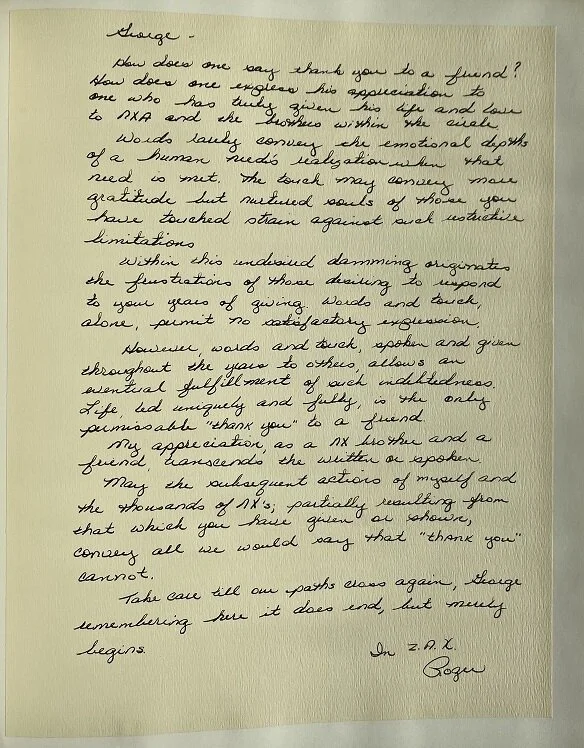 George -
How does one say thank you to a friend?
How does one express his appreciation to
one who has truly given his life and love
to ΛXA and the brothers within the circle
Words rarely convey the emotional depths
of a human need's realization when that
need is met. The touch may convey more
gratitude but nurtured souls of those you
have touched strain against such restrictive
limitations
Within this undesired damming originates
the frustrations of those desiring to respond
to your years of giving. Words and touch,
alone, permit no satisfactory expression.
However, words and touch, spoken and given
throughout the years to others, allows an
eventual fulfillment of such indebtedness.
Life, led uniquely and fully, is the only
permissable "thank you" to a friend.
My appreciation, as a ΛX brother and a
friend, transcends the written or spoken.
May the subsequent actions of myself and
the thousands of ΛX's, partially resulting from
that which you have given or shown,
convey all we would say that "thank you"
cannot.
Take care till our paths cross again, George
remembering here it does end, but merely
begins.
In Z.A.X.
Roger